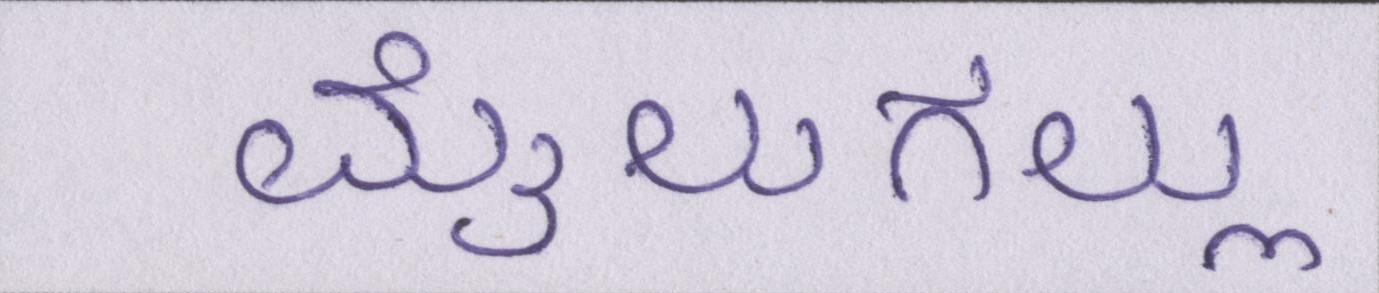 ಮೈಲುಗಲ್ಲು